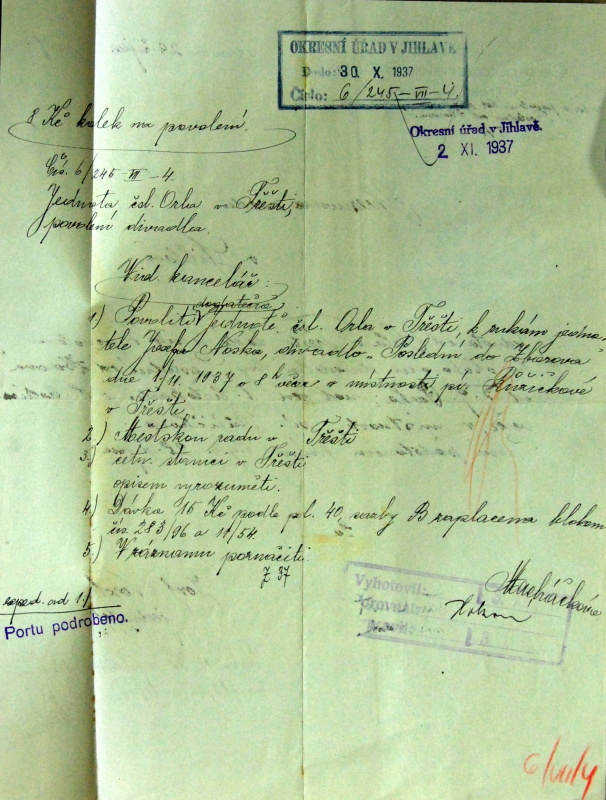 OKRESNÍ ÚŘAD V JIHLAVĚ
Došlo: 30 X. 1937
Číslo: 6/245-VII-4.
Okresní úřad v Jihlavě.
2 XI. 1937
8 Kč kolek na povolení.
Čís. 6/245-VII-4.
Jednota čsl. Orla v Třešti,
povolení divadla.
Vid. kancelář:
dodatečně
1.) Povoliti Jednotě čsl. Orla v Třešti, k rukám jedna-
tele Josefa Noska, divadlo „Poslední do Zborova"
dne 1./11. 1937 o 8 h večer v místnosti pí. Růžičkové
v Třešti.
2.) Městskou radu v Třešti
3.) četn. stanici v Třešti
opisem vyrozuměti.
4.) Dávka 15 Kč podle pl. 40, sazby B zaplacena blokem
čís. 283/96 a 11/54.
5.) V záznamu poznačiti.
Z 37
Portu podrobeno.
Vyhotovil:
Srovnal:
6/VII/4